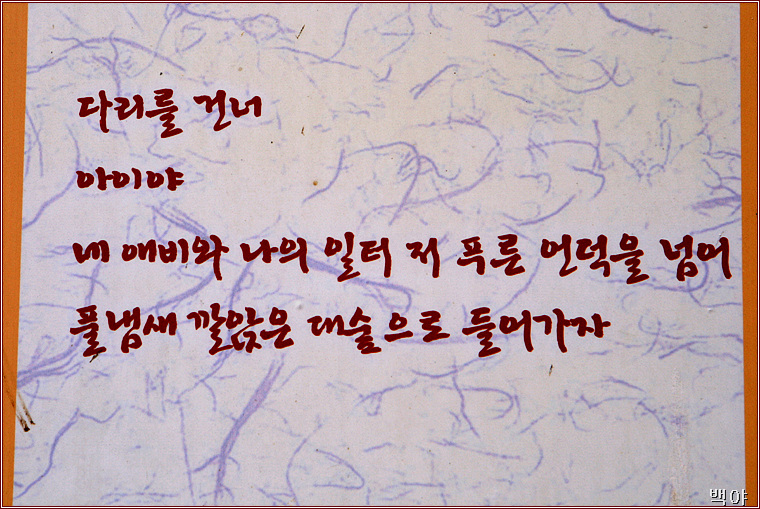 다리를 건너
아이야
네 애비와 나의 일터 저 푸른 언덕을 넘어
풀냄새 깔앉은 대숲으로 들어가자
백야